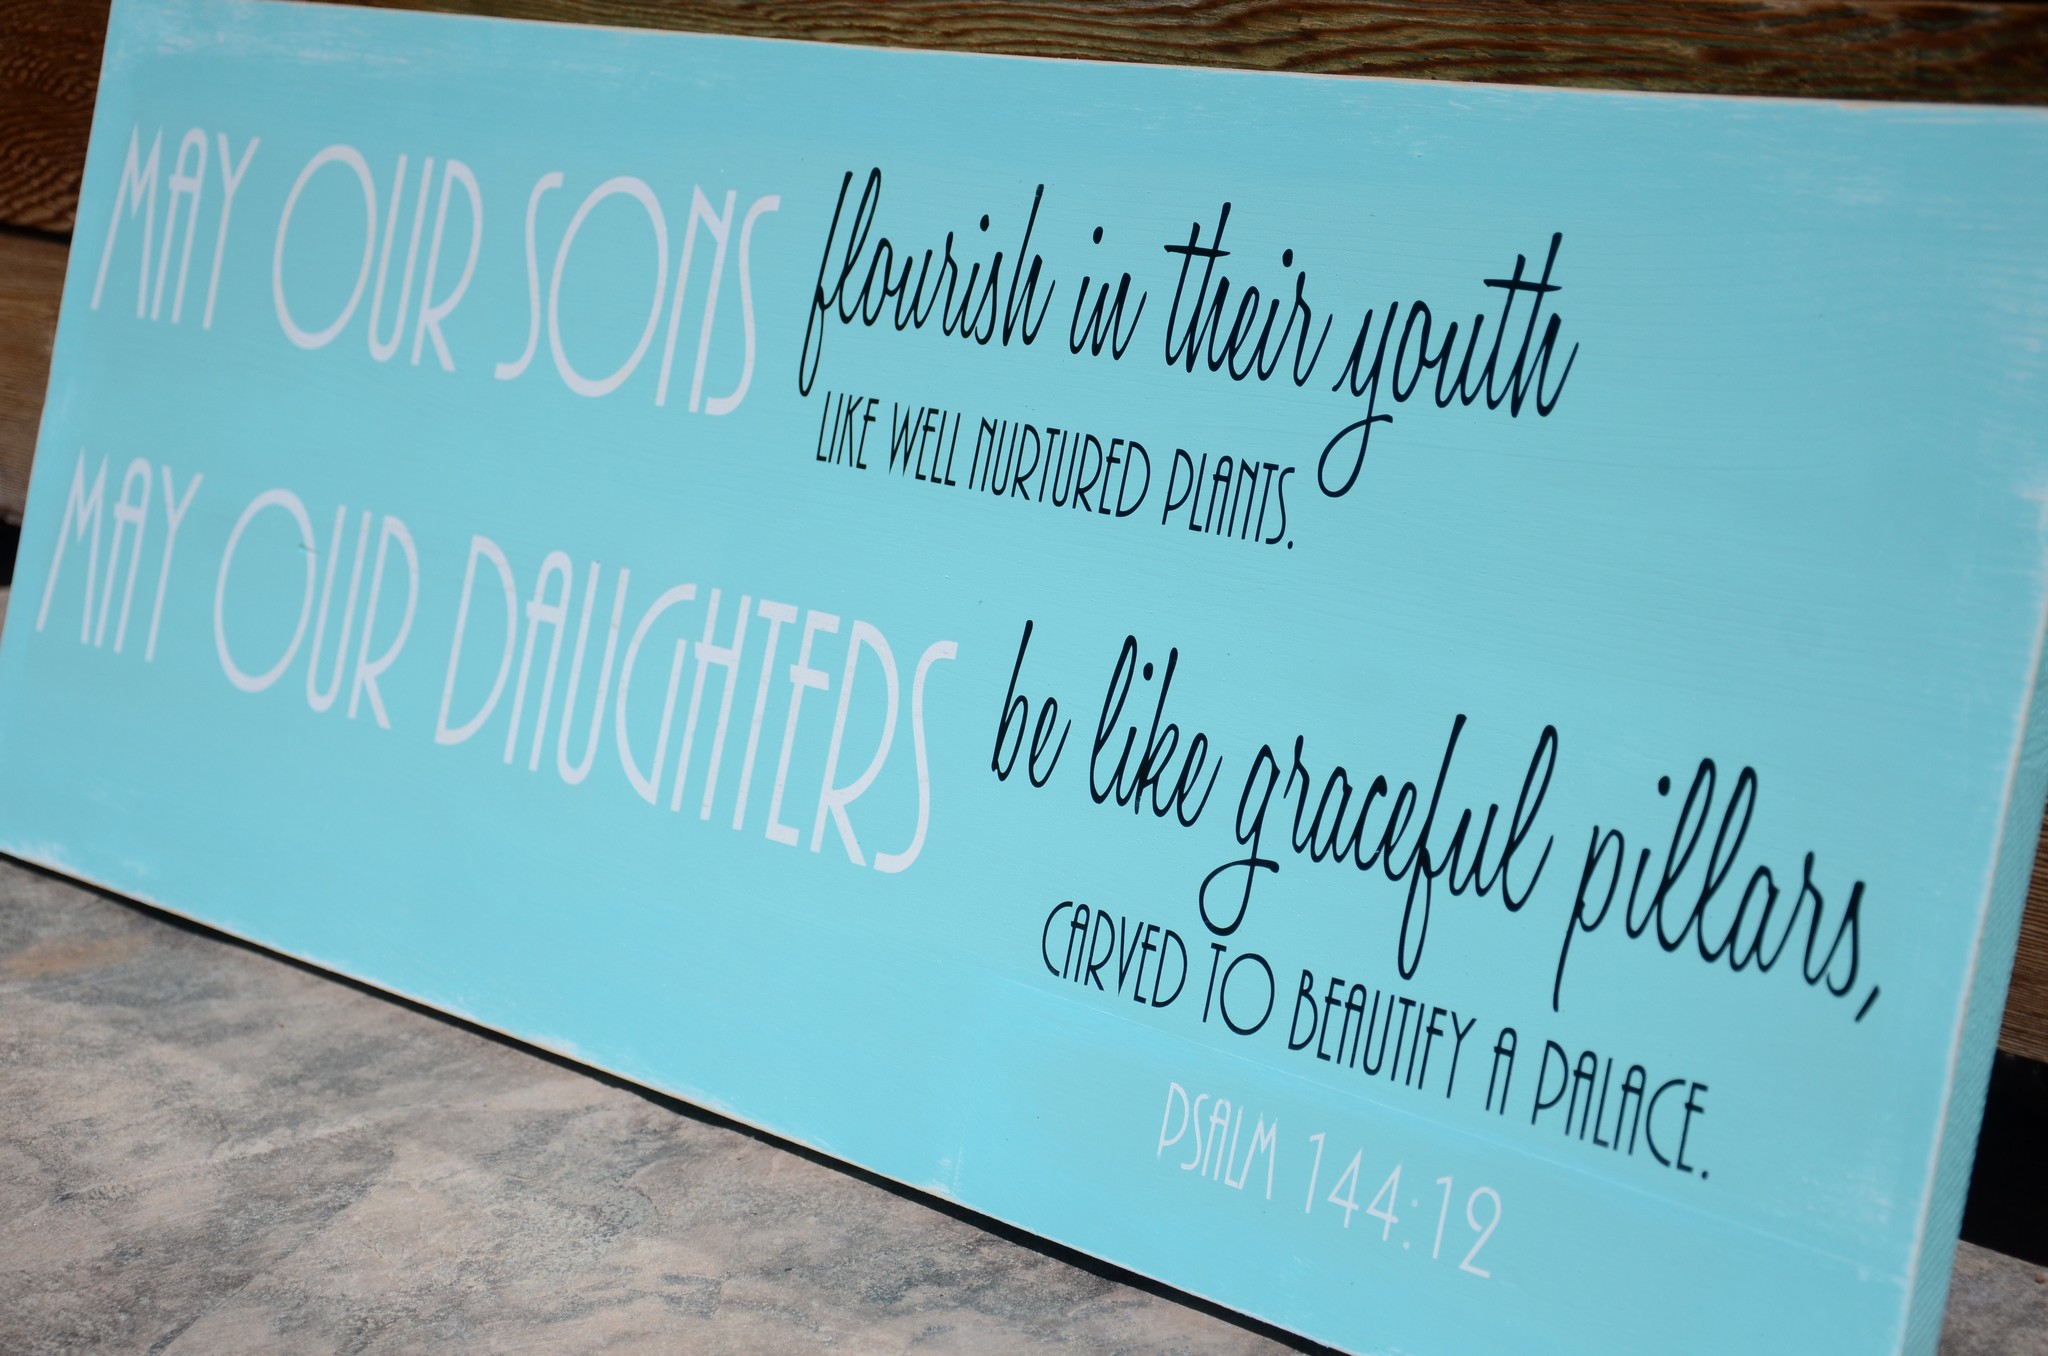 MAY OUR SONS flourish in their youth
LIKE WELL NURTURED PLANTS.
MAY OUR DAUGHTERS be like graceful pillars,
CARVED TO BEAUTIFY A PALACE.
PSALM 144:12